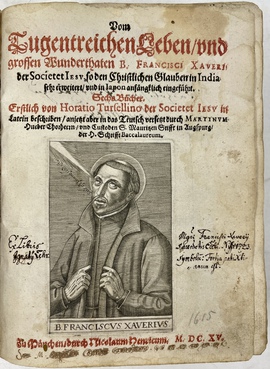 Vom
Tugentreichen Leben/ vnd
grossen Wunderthaten B. FRANCISCI XAVERI:
der Societet IESV, so den Christlichen Glauben in India
sehr erweitert/ vnd in Iapon anfänglich eingeführt.
Sechs Bücher.
Erstlich von Horatio Tursellino der Societet IESV in
Latein beschriben/ anjetzt aber in das Teutsch versetzt durch MARTINVM
Hueber Chorherrn/ vnd Custoden S. Mauritzen Stifft in Augspurg/
der H. Schrifft Baccalaureum.
Ex Libris
1615
B. FRANCISCVS XAVERIVS
Zu München/ durch Nicolaum Henricum, M. DC. XV.